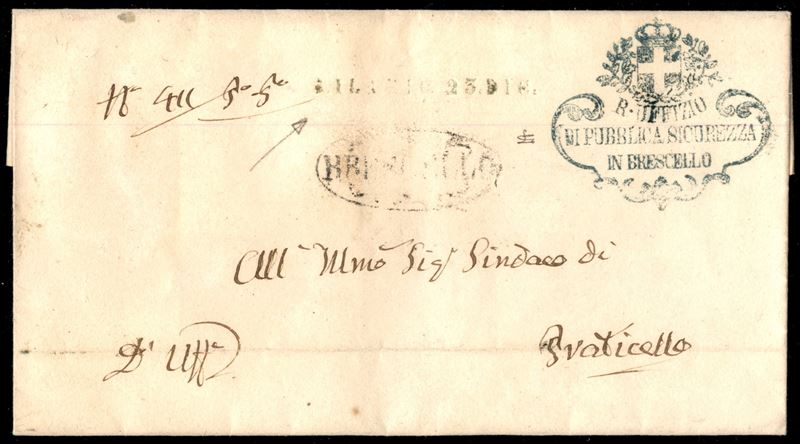 N° 411 P. S.
23. DIC.
R. UFFIZIO
DI PUBBLICA SICUREZZA
IN BRESCELLO
BRESCELLO
All' Illmo Sigr Sindaco di
D' Uff°
Praticello